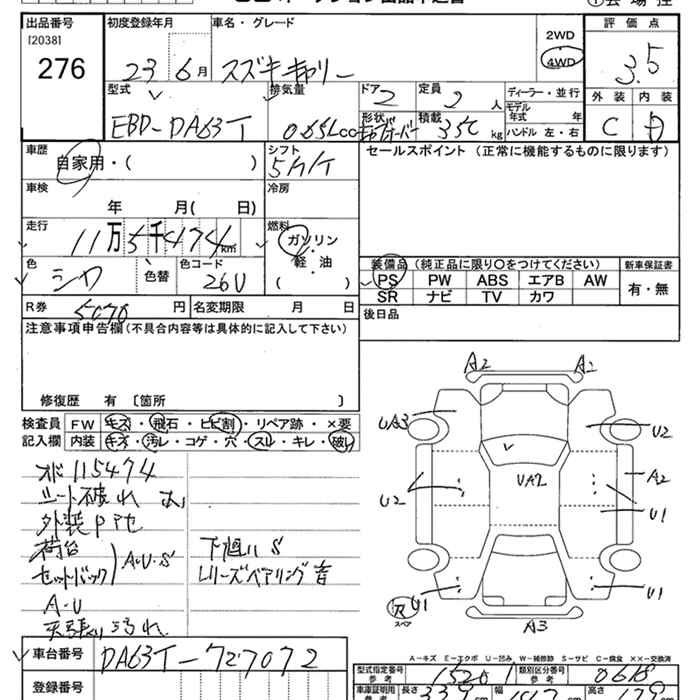 出品番号 初度登録年月 車名・グレード 評価点
[2038]
276
23年 6月 スズキ キャリー 2WD 4WD 3.5
型式 排気量 ドア 定員 ディーラー・並行 外装 内装
EBD-DA63T 0.65L cc 2 2人 モデル年式 年 C D
形状 積載 350kg ハンドル 左・右
車歴 シフト セールスポイント (正常に機能するものに限ります)
自家用・( ) 5MT
車検 冷房
年 月( 日)
走行 燃料
11万5千474km ガソリン・軽・油
( )
色 色替 色コード 装備品 (純正品に限り○をつけてください) 新車保証書
シロ 26U PS PW ABS エアB AW 有・無
SR ナビ TV カワ
R券 5070円 名変期限 月 日 後日品
注意事項申告欄(不具合内容等は具体的に記入して下さい)
修復歴 有 [箇所 ]
検査員 FW キズ・飛石・ヒビ割・リペア跡・×要
記入欄 内装 キズ・汚レ・コゲ・穴・スレ・キレ・破レ
オド 115474
シート破れ
外装
荷台
セットバック A・U・S
A・U
天張り汚れ
下廻り S
ベアリング音
A2 A2
UA3 U2
U2 UA2 A2
U1
U1 U1
スペア A3
車台番号 DA63T-727072
登録番号
A-キズ E-エクボ U-凹み W-補修跡 S-サビ C-腐食 XX-交換済
型式指定番号 参考 15201 類別区分番号 参考 0618
車庫証明用 参考 長さ 339 幅 147 高さ 179